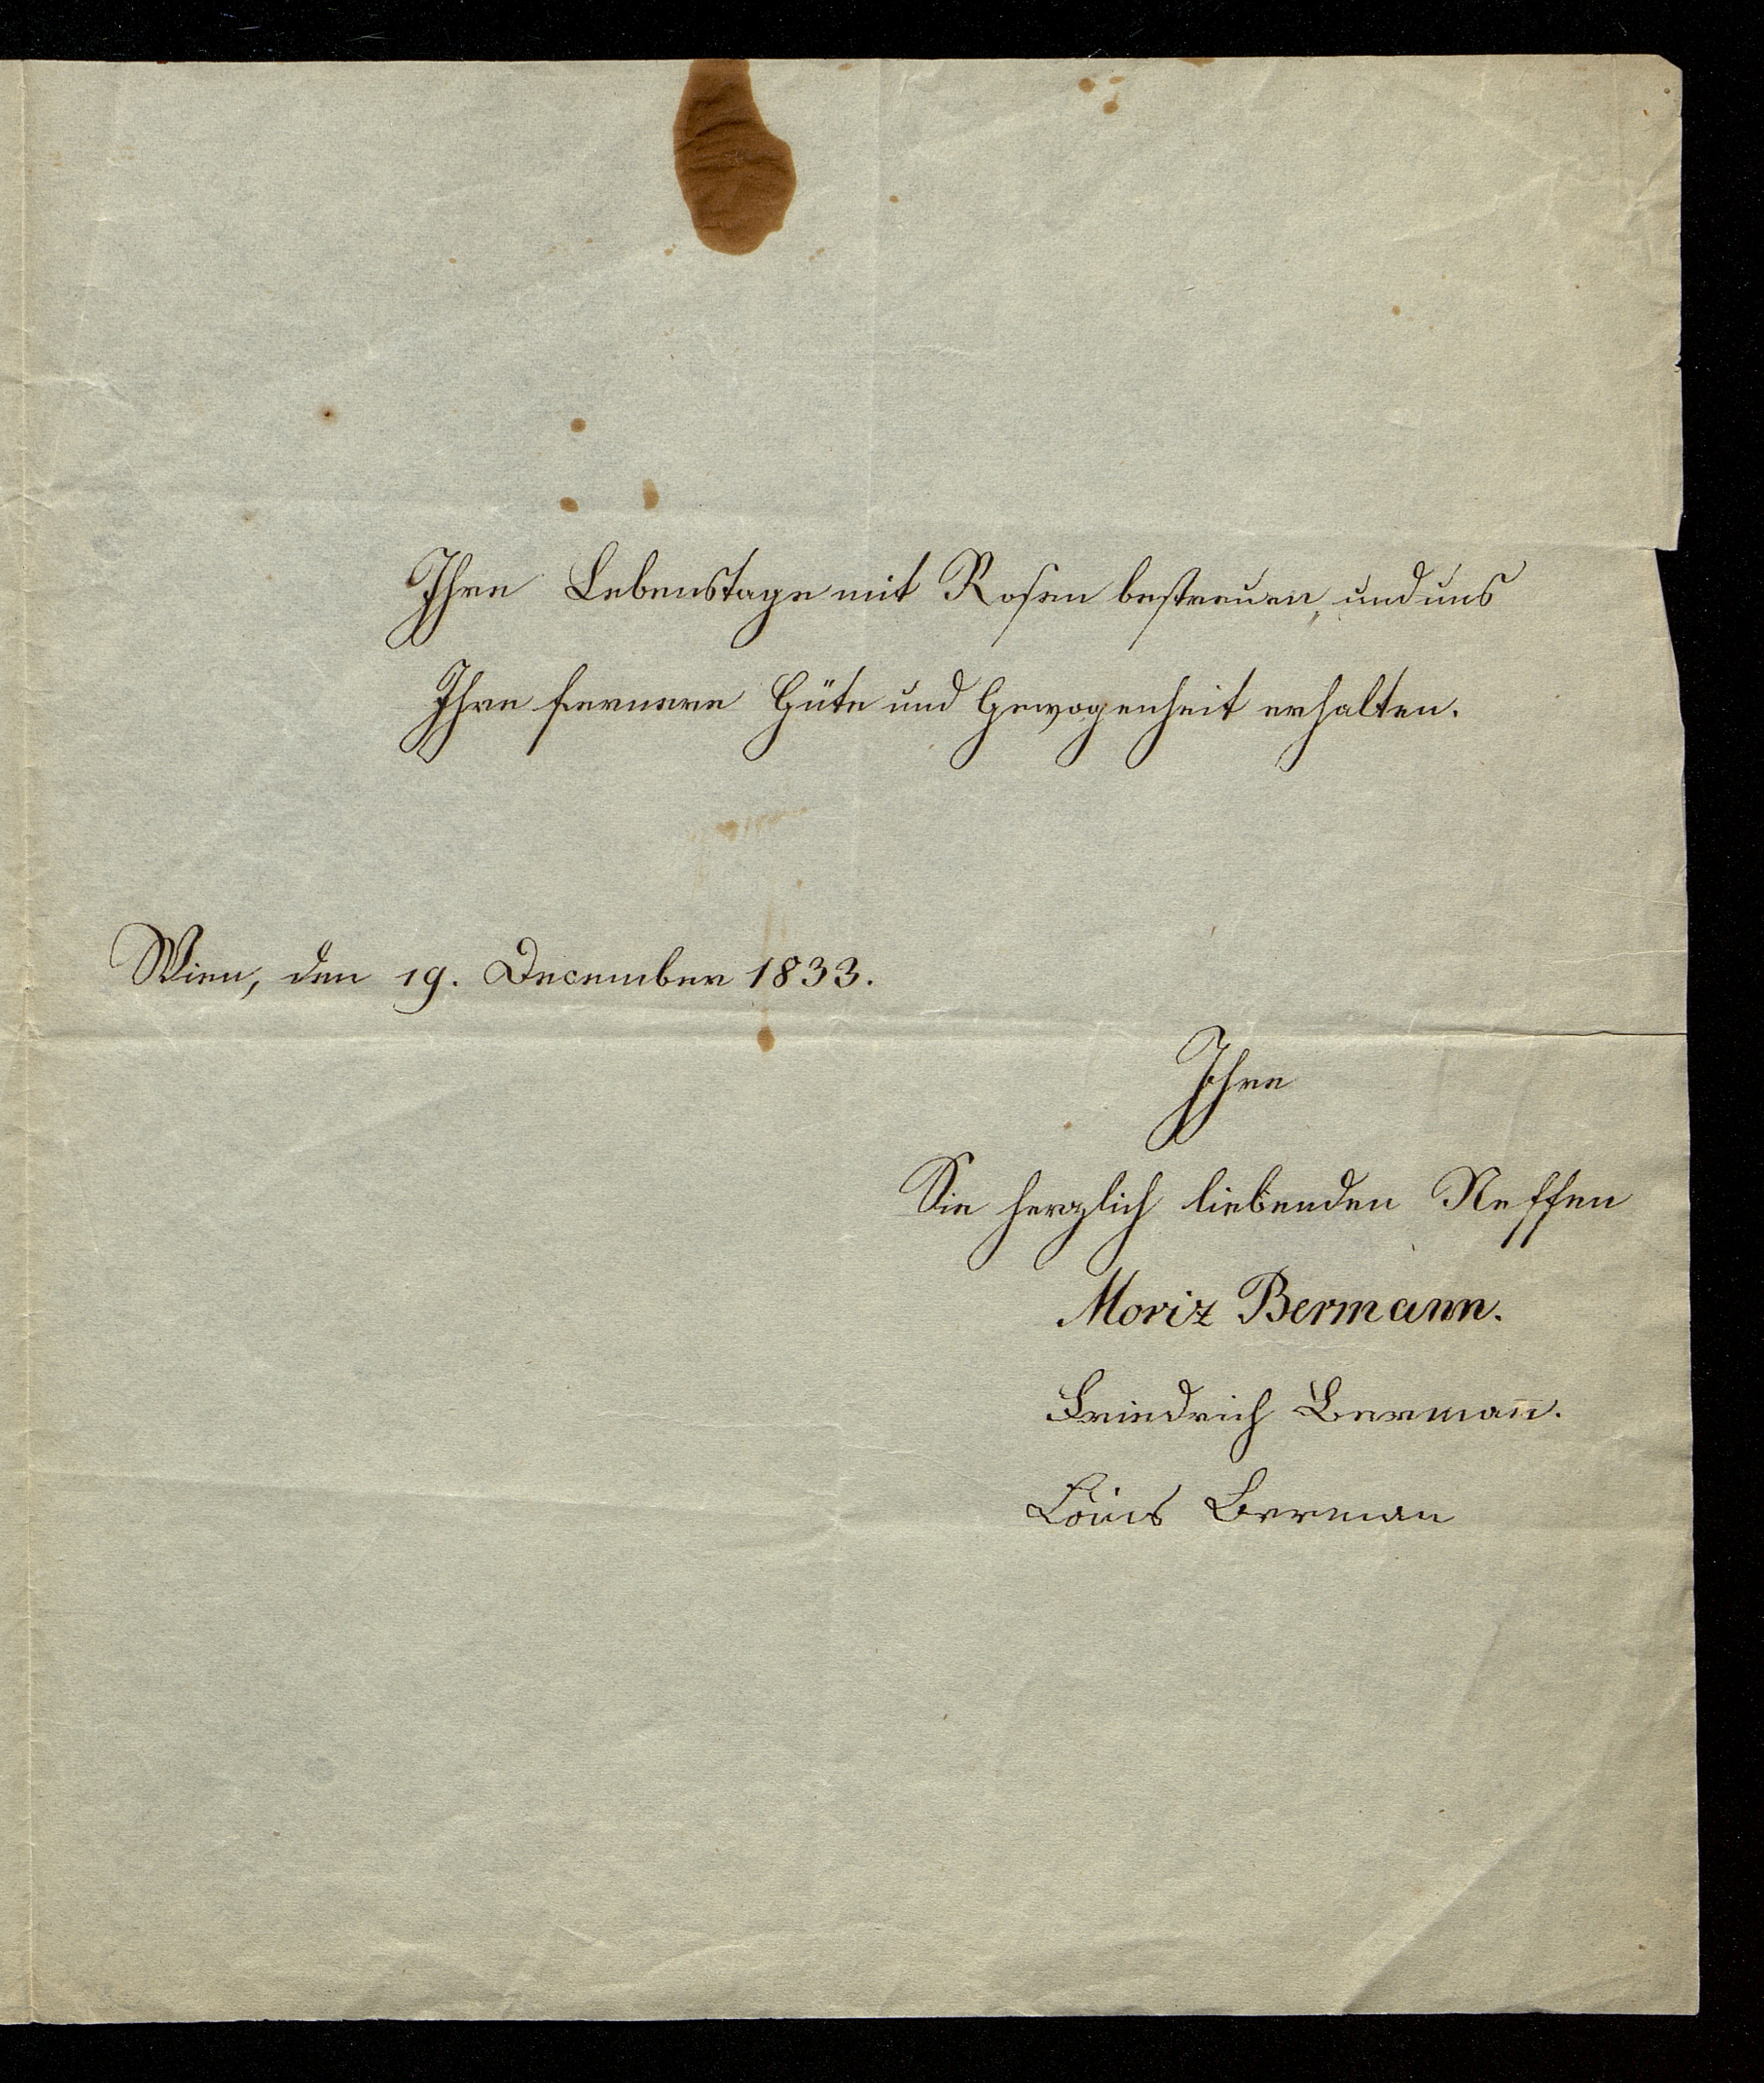 Ihre Lebenstage mit Rosen bestreuen, und uns
Ihre fernere Güte und Gewogenheit erhalten.
Wien, den 19. December 1833.
Ihre
Sie herzlich liebenden Neffen
Moriz Bermann.
Friedrich Berman̅.
Louis Berman